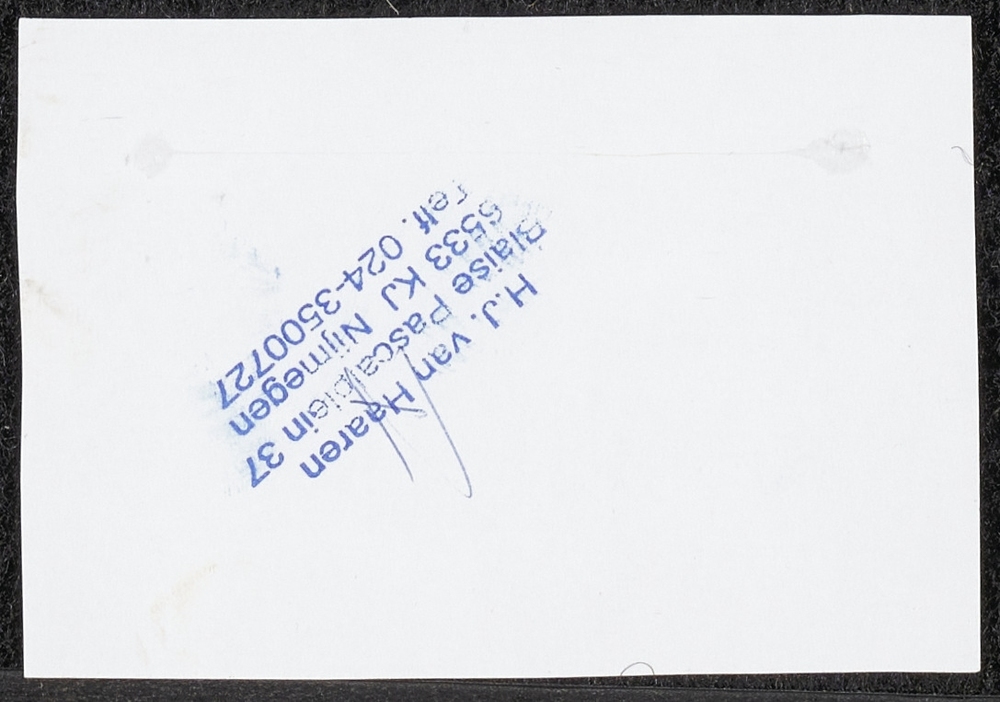 H.J. van Haaren
Blaise Pascalplein 37
6533 KJ Nijmegen
Telf. 024-3500727